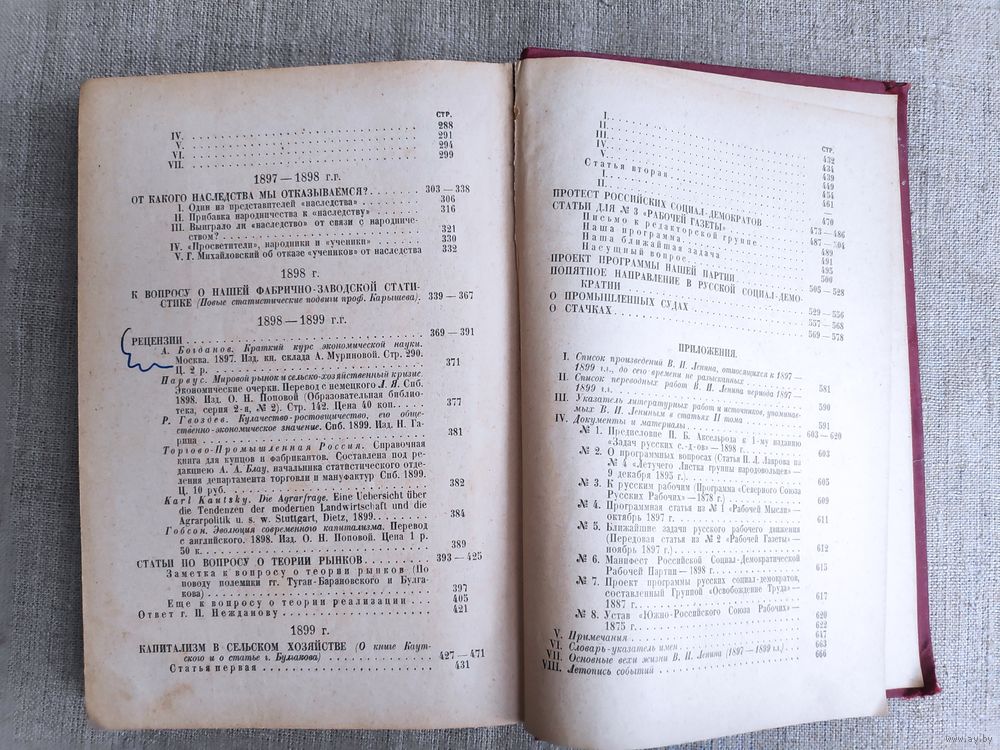 СТР.
288
IV. 291
V. 294
VI. 299
VII.
1897 — 1898 г.г.
ОТ КАКОГО НАСЛЕДСТВА МЫ ОТКАЗЫВАЕМСЯ? 303 — 338
I. Один из представителей «наследства» 306
II. Прибавка народничества к «наследству» 316
III. Выиграло ли «наследство» от связи с народниче-
ством? 321
IV. «Просветители», народники и «ученики» 330
V. Г. Михайловский об отказе «учеников» от наследства 332
1898 г.
К ВОПРОСУ О НАШЕЙ ФАБРИЧНО-ЗАВОДСКОЙ СТАТИ-
СТИКЕ (Новые статистические подвиги проф. Карышева). 339 — 367
1898 — 1899 г.г.
РЕЦЕНЗИИ 369 — 391
А. Богданов. Краткий курс экономической науки.
Москва. 1897. Изд. кн. склада А. Муриновой. Стр. 290.
Ц. 2 р. 371
Парвус. Мировой рынок и сельско-хозяйственный кризис.
Экономические очерки. Перевод с немецкого Л. Я. Спб.
1898. Изд. О. Н. Поповой (Образовательная библио-
тека, серия 2-я, № 2). Стр. 142. Цена 40 коп. 377
Р. Гвоздев. Кулачество-ростовщичество, его обще-
ственно-экономическое значение. Спб. 1899. Изд. Н. Га-
рина 381
Торгово-Промышленная Россия. Справочная
книга для купцов и фабрикантов. Составлена под ре-
дакциею А. А. Блау, начальника статистического отде-
ления департамента торговли и мануфактур Спб. 1899.
Ц. 10 руб. 382
Karl Kautsky. Die Agrarfrage. Eine Uebersicht über
die Tendenzen der modernen Landwirtschaft und die
Agrarpolitik u. s. w. Stuttgart, Dietz, 1899. 384
Гобсон. Эволюция современного капитализма. Перевод
с английского. 1898. Изд. О. Н. Поповой. Цена 1 р.
50 к. 389
СТАТЬИ ПО ВОПРОСУ О ТЕОРИИ РЫНКОВ 393 — 425
Заметка к вопросу о теории рынков (По
поводу полемики гг. Туган-Барановского и Булга-
кова) 397
Еще к вопросу о теории реализации 405
Ответ г. П. Нежданову 421
1899 г.
КАПИТАЛИЗМ В СЕЛЬСКОМ ХОЗЯЙСТВЕ (О книге Каут-
ского и о статье г. Булгакова) 427 — 471
Статья первая 431
СТР.
I. 432
II. 434
III. 439
IV. 449
V. 454
Статья вторая 461
I.
II. 470
ПРОТЕСТ РОССИЙСКИХ СОЦИАЛ-ДЕМОКРАТОВ 473 — 486
СТАТЬИ ДЛЯ № 3 «РАБОЧЕЙ ГАЗЕТЫ» 487 — 504
Письмо к редакторской группе 489
Наша программа 491
Наша ближайшая задача 495
Насущный вопрос 500
ПРОЕКТ ПРОГРАММЫ НАШЕЙ ПАРТИИ 505 — 528
ПОПЯТНОЕ НАПРАВЛЕНИЕ В РУССКОЙ СОЦИАЛ-ДЕМО-
КРАТИИ 529 — 556
О ПРОМЫШЛЕННЫХ СУДАХ 557 — 568
О СТАЧКАХ 569 — 578
ПРИЛОЖЕНИЯ.
I. Список произведений В. И. Ленина, относящихся к 1897 —
1899 г.г., до сего времени не разысканных 581
II. Список переводных работ В. И. Ленина периода 1897 —
1899 г.г. 590
III. Указатель литературных работ и источников, упомина-
емых В. И. Лениным в статьях II тома 591
IV. Документы и материалы 603 — 620
№ 1. Предисловие П. Б. Аксельрода к 1-му изданию
«Задач русских с.-д-ов» — 1898 г. 603
№ 2. О программных вопросах (Статья П. Л. Лаврова из
№ 4 «Летучего Листка группы народовольцев» —
9 декабря 1895 г.) 605
№ 3. К русским рабочим (Программа «Северного Союза
Русских Рабочих» — 1878 г.) 609
№ 4. Программная статья из № 1 «Рабочей Мысли» —
октябрь 1897 г. 611
№ 5. Ближайшие задачи русского рабочего движения
(Передовая статья из № 2 «Рабочей Газеты» —
ноябрь 1897 г.) 612
№ 6. Манифест Российской Социал-Демократической
Рабочей Партии — 1898 г. 615
№ 7. Проект программы русских социал-демократов,
составленный Группой «Освобождение Труда» —
1887 г. 617
№ 8. Устав «Южно-Российского Союза Рабочих» —
1875 г. 620
V. Примечания 622
VI. Словарь-указатель имен 647
VII. Основные вехи жизни В. И. Ленина (1897 — 1899 г.г.) 663
VIII. Летопись событий 666
www.ay.by